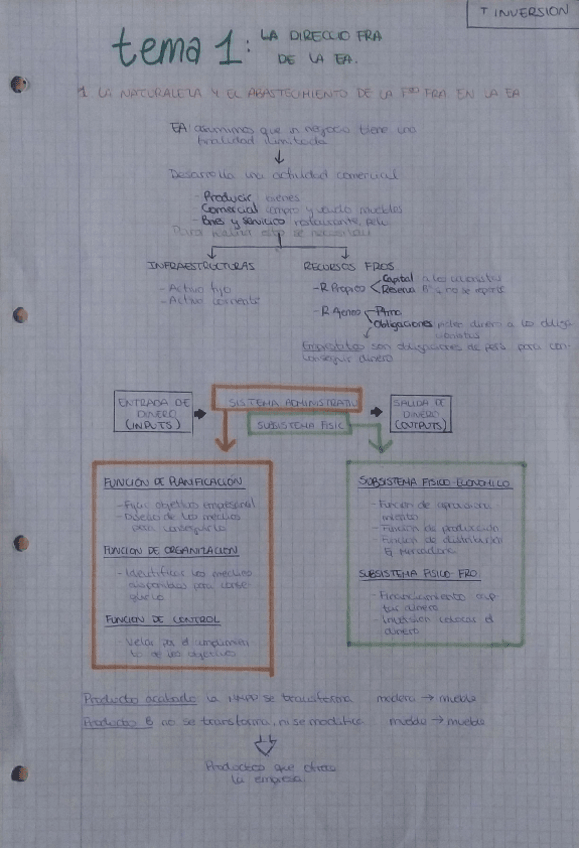 T INVERSION
tema 1: LA DIRECCIO FRA
DE LA EA.
1. LA NATURALEZA Y EL ABASTECIMIENTO DE LA FRA EN LA EA
EA: asumimos que un negocio tiene una
finalidad ilimitada
Desarrolla una actividad comercial
- Producir bienes
Comercial compro y vendo muebles
- Bnes y servicios restaurante, pelu
Para realizar esto se necesitan
INFRAESTRUCTURAS
- Activo fijo
- Activo corriente
RECURSOS FROS
- R Propios
Capital
Reserva Bº q no se reparte
- R Ajenos
Ptmo
Obligaciones pides dinero a los obliga
cionistas
Empréstitos son obligaciones de para con-
conseguir dinero
ENTRADA DE
DINERO
(INPUTS)
SISTEMA ADMINISTRATI
SUBSISTEMA FISIC
SALIDA DE
DINERO
(OUTPUTS)
FUNCION DE PLANIFICACIÓN
- Fijar objetivo empresarial
- Diseño de los medios
para conseguirlo
FUNCION DE ORGANIZACIÓN
- Identificar los medios
disponibles para conse-
guirlo
FUNCION DE CONTROL
- Velar por el cumplimien
to de los objetivos
SUBSISTEMA FISICO-ECONOMICO
- Funcion de aprovisiona
miento
- Funcion de producción
- Funcion de distribucion
SUBSISTEMA FISICO-FRO
- Financiamiento cap
tar dinero
- Inversion colocar el
dinero
Producto acabado la MMPP se transforma madera → mueble
Producto B no se transforma, ni se modifica mueble → mueble
Productos que ofrece
la empresa